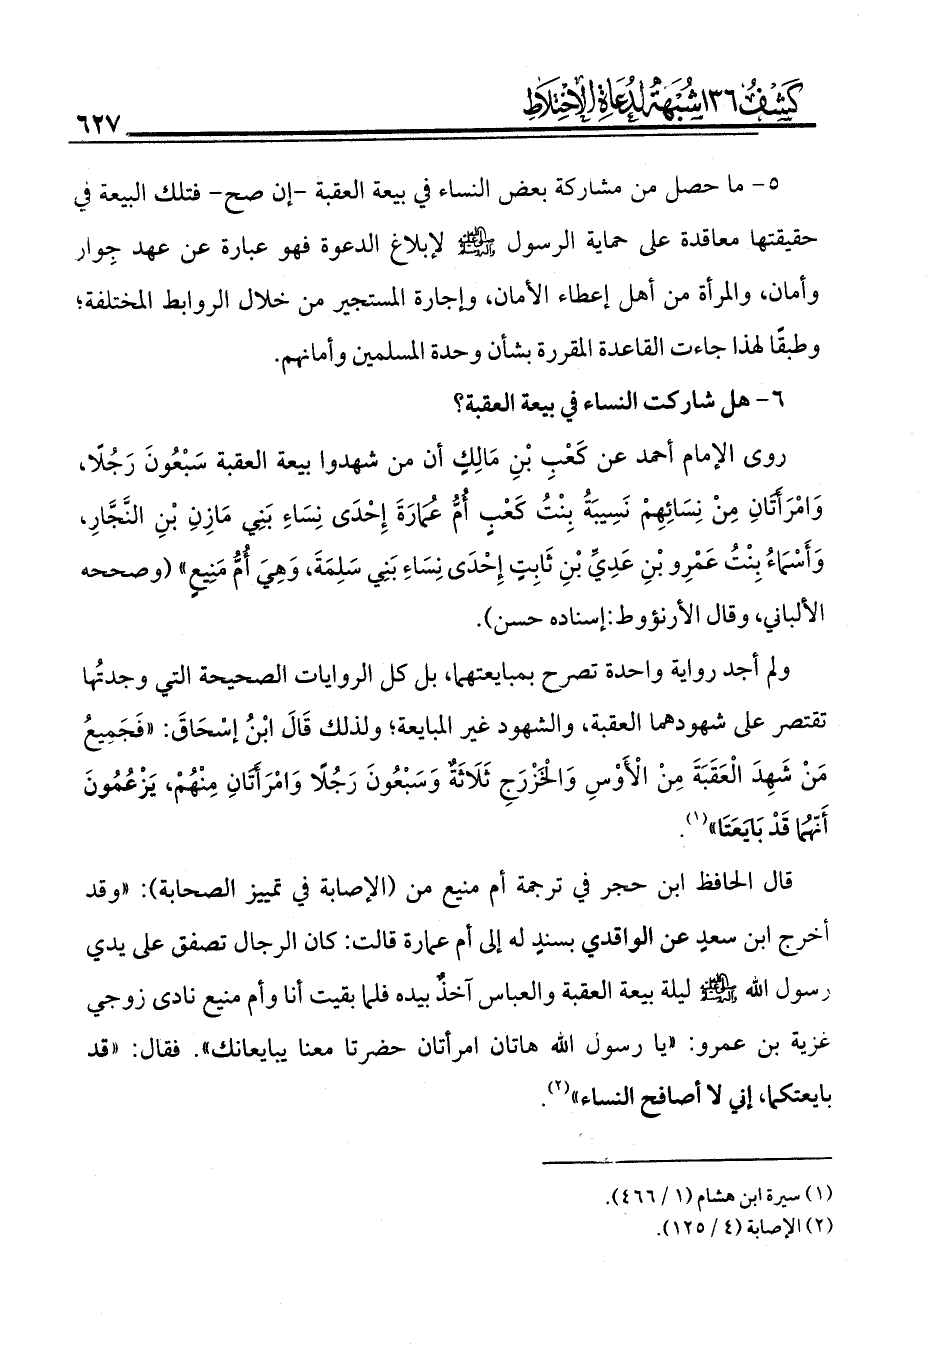 كشف ١٣٦ شبهة لدعاة الاختلاط
٦٢٧
٥- ما حصل من مشاركة بعض النساء في بيعة العقبة -إن صح- فتلك البيعة في
حقيقتها معاقدة على حماية الرسول ﷺ لإبلاغ الدعوة فهو عبارة عن عهد جِوار
وأمان، والمرأة من أهل إعطاء الأمان، وإجارة المستجير من خلال الروابط المختلفة؛
وطبقًا لهذا جاءت القاعدة المقررة بشأن وحدة المسلمين وأمانهم.
٦- هل شاركت النساء في بيعة العقبة؟
روى الإمام أحمد عن كَعْبِ بْنِ مَالِكٍ أن من شهدوا بيعة العقبة سَبْعُونَ رَجُلًا،
وَامْرَأَتَانِ مِنْ نِسَائِهِمْ نَسِيبَةُ بِنْتُ كَعْبٍ أُمُّ عُمَارَةَ إِحْدَى نِسَاءِ بَنِي مَازِنِ بْنِ النَّجَّارِ،
وَأَسْمَاءُ بِنْتُ عَمْرِو بْنِ عَدِيِّ بْنِ ثَابِتٍ إِحْدَى نِسَاءِ بَنِي سَلِمَةَ، وَهِيَ أُمُّ مَنِيعٍ» (وصححه
الألباني، وقال الأرنؤوط:إسناده حسن).
ولم أجد رواية واحدة تصرح بمبايعتهما، بل كل الروايات الصحيحة التي وجدتُها
تقتصر على شهودهما العقبة، والشهود غير المبايعة؛ ولذلك قَالَ ابْنُ إِسْحَاقَ: «فَجَمِيعُ
مَنْ شَهِدَ الْعَقَبَةَ مِنْ الْأَوْسِ وَالْخَزْرَجِ ثَلَاثَةٌ وَسَبْعُونَ رَجُلًا وَامْرَأَتَانِ مِنْهُمْ، يَزْعُمُونَ
أَنّهُمَا قَدْ بَايَعَتَا»(١).
قال الحافظ ابن حجر في ترجمة أم منيع من (الإصابة في تمييز الصحابة): «وقد
أخرج ابن سعدٍ عن الواقدي بسندٍ له إلى أم عمارة قالت: كان الرجال تصفق على يدي
رسول الله ﷺ ليلة بيعة العقبة والعباس آخذٌ بيده فلما بقيت أنا وأم منيع نادى زوجي
غزية بن عمرو: «يا رسول الله هاتان امرأتان حضرتا معنا يبايعانك». فقال: «قد
بايعتكما، إني لا أصافح النساء»(٢).
(١) سيرة ابن هشام (١ / ٤٦٦).
(٢) الإصابة (٤ / ١٢٥).